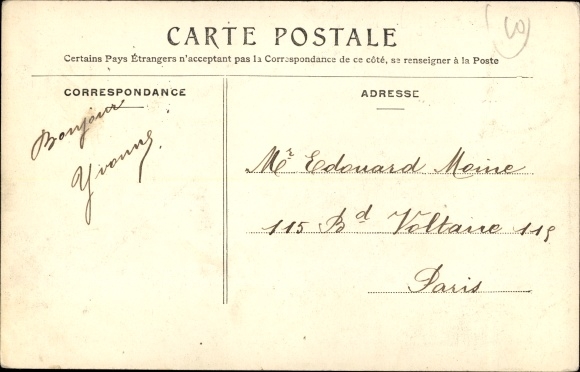 CARTE POSTALE
Certains Pays Étrangers n'acceptant pas la Correspondance de ce côté, se renseigner à la Poste
CORRESPONDANCE
Bonjour
Yvonne
ADRESSE
Mr Edouard Moine
115 Bd Voltaire 115
Paris